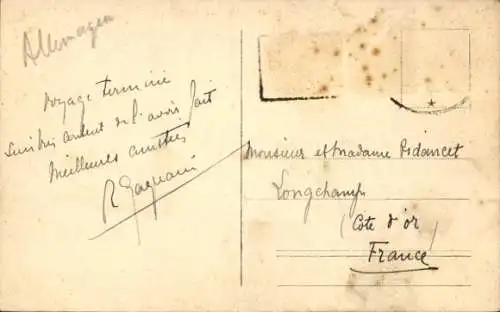 Allemagne
Voyage terminé
suis très content de l'avoir fait
Meilleures amitiés
R Gagnani
Monsieur et Madame Pidancet
Longchamp
(Cote d'or)
France